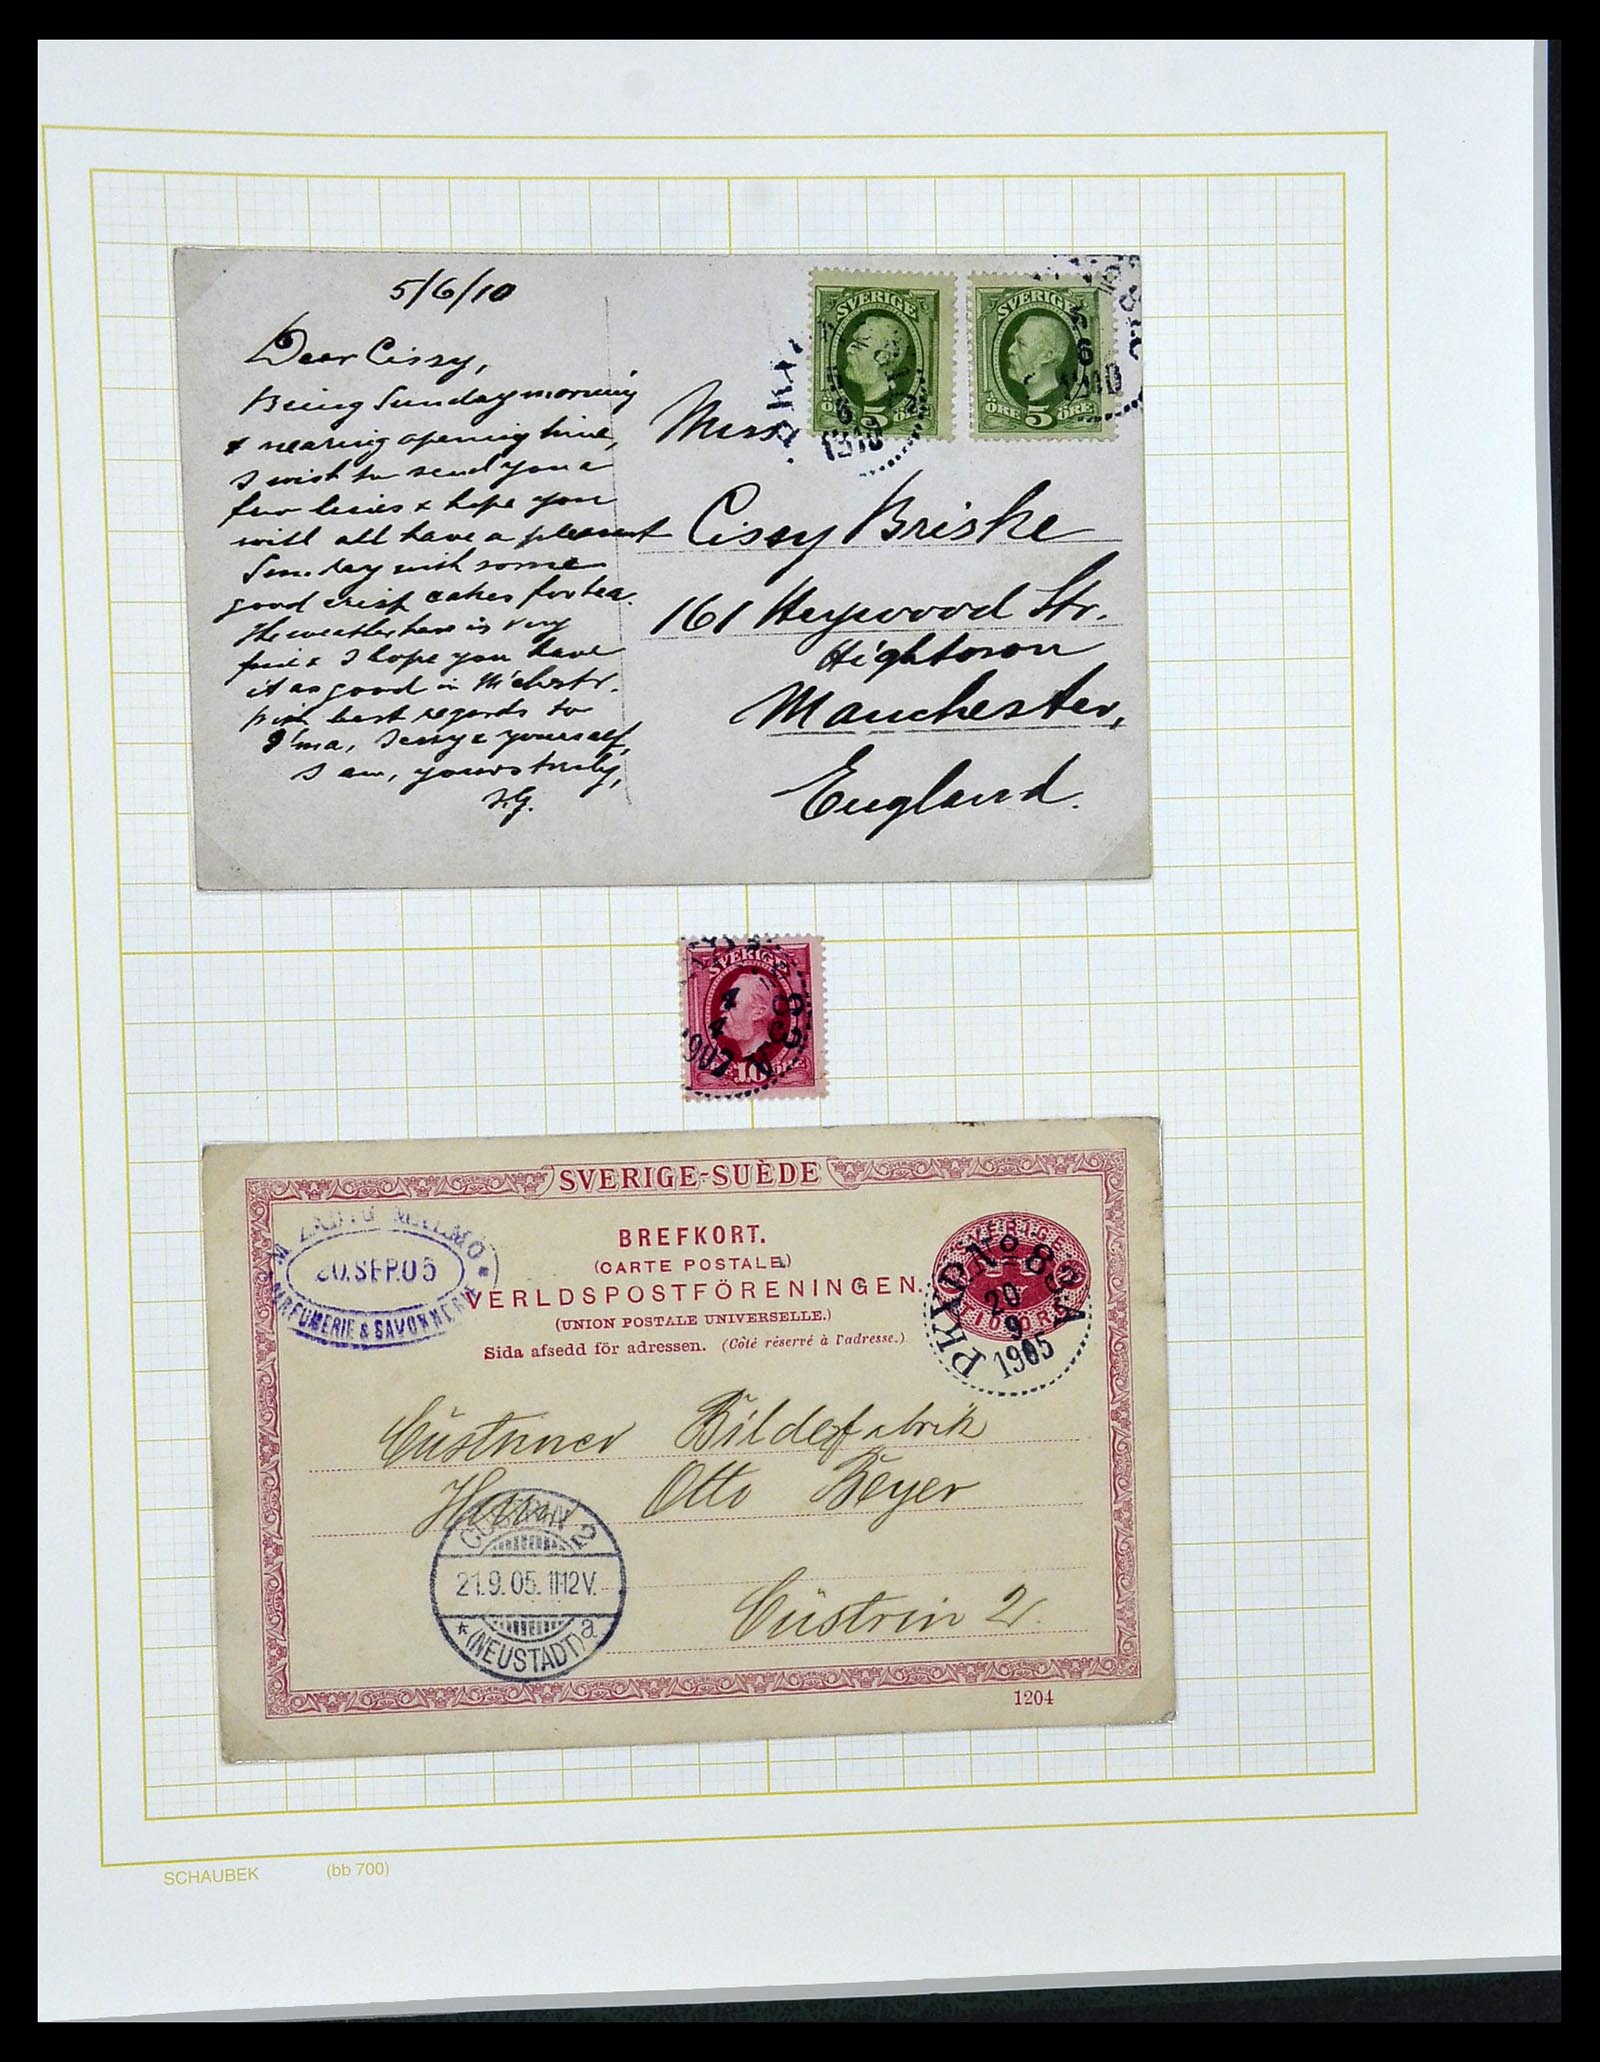 5/6/10
Dear Cissy,
Being Sunday morning
& nearing opening time,
I wish to send you a
few lines & hope you
will all have a pleasant
Sunday with some
good crisp cakes for tea.
The weather here is very
fine & I hope you have
it as good in M'chestr.
With best regards to
yourself,
I am, yours truly,
SVERIGE
ÖRE 5 ÖRE
1910
SVERIGE
ÖRE 5 ÖRE
6
1910
Miss
Cissy Briske
161 Heywood Str.
Hightown
Manchester,
England.
SVERIGE
4
4
1906
10
SVERIGE-SUÈDE
BREFKORT.
(CARTE POSTALE)
VERLDSPOSTFÖRENINGEN.
(UNION POSTALE UNIVERSELLE.)
Sida afsedd för adressen. (Côté réservé à l'adresse.)
MALMÖ
20.SEP.05
PARFUMERIE & SAVONNERIE
SVERIGE
PKXP No 83
20
9
1905
Cüstriner Bilderfabrik
Herrn Otto Beyer
Cüstrin 2.
CÜSTRIN 2
21.9.05.11-12V.
* (NEUSTADT) a
1204
SCHAUBEK (bb 700)